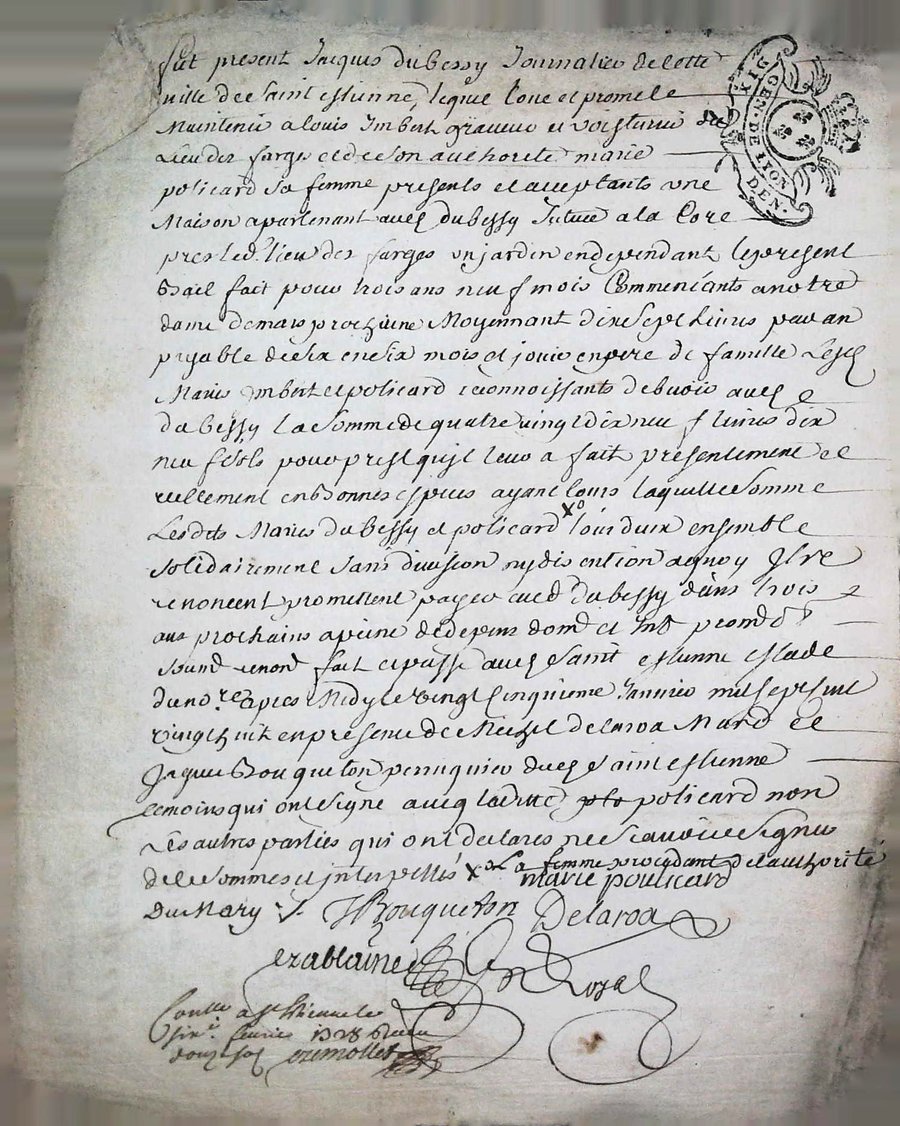 fut present Jacques dubessy Journalier de cette
ville de Saint estienne, lequel loue et promet
Maintenir a louis Imbert graveur et voisturier du
Lieu des farges et de son authorité marie
policard Sa femme presents et acceptants une
Maison apartenant aud dubessy Scituée a la Core
pres led. lieu des farges un jardin en dependant le present
Bail fait pour trois ans neuf mois Commençants a notre
dame de mars prochaine Moyennant dixsept livres par an
payable de six en six mois et jouir en pere de famille Lesd
Maries Imbert et policard reconnoissants debvoir aud
dubessy la Somme de quatre vingt dix neuf livres dix
neuf Sols pour prest qu'il leur a fait presentement et
reellement en Bonnes especes ayant Cours laquelle Somme
Lesdits Maries dubessy et policard Xo tous deux ensemble
Solidairement Sans division ny discution a quoy Ils re
renoncent promettent payer aud dubessy dans trois
ans prochains a peine de depens dom et Int prom
Soum renon fait et passé aud Saint estienne estude
du no.re apres Midy le vingt Cinquieme Janvier mil Sept Cent
vingt huit en presence de Michel delaroa Mard et
Jaques Bouqueton perruquier dud Saint estienne
temoins qui ont Signé avec laditte policard non
Les autres parties qui ont declares ne Scavoir Signer
de ce Sommes et interpellés Xo La femme procedant de l'authorité
Du Mary
marie poulicard
JBouqueton Delaroa
Royal
Conlle a St Estienne le
fevrier 1728 Receu
douze sols
DIX
GEN. DE LYON
DEN.